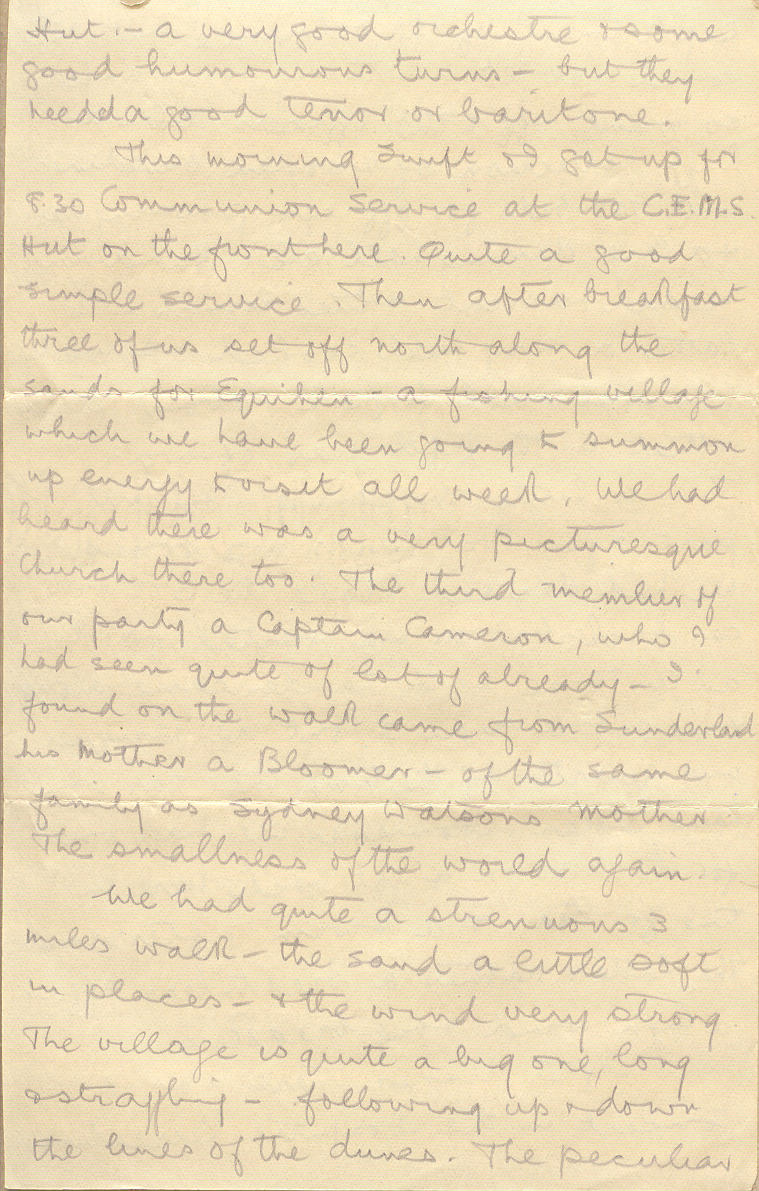 Hut. - a very good orchestre & some
good humourous turns - but they
needed a good tenor or baritone.
This morning Swift & I got up for
8.30 Communion Service at the C.E.M.S.
Hut on the front here. Quite a good
simple service. Then after breakfast
three of us set off north along the
sands for Equihen - a fishing village
which we have been going to summon
up energy to visit all week. We had
heard there was a very picturesque
Church there too. The third member of
our party a Captain Cameron, who I
had seen quite of lot of already - I
found on the walk came from Sunderland
his Mother a Bloomer - of the same
family as Sydney Watsons mother.
The smallness of the world again.
We had quite a strenuous 3
miles walk - the sand a little soft
in places - & the wind very strong
The village is quite a big one, long
& straggling - following up & down
the lines of the dunes. The peculiar